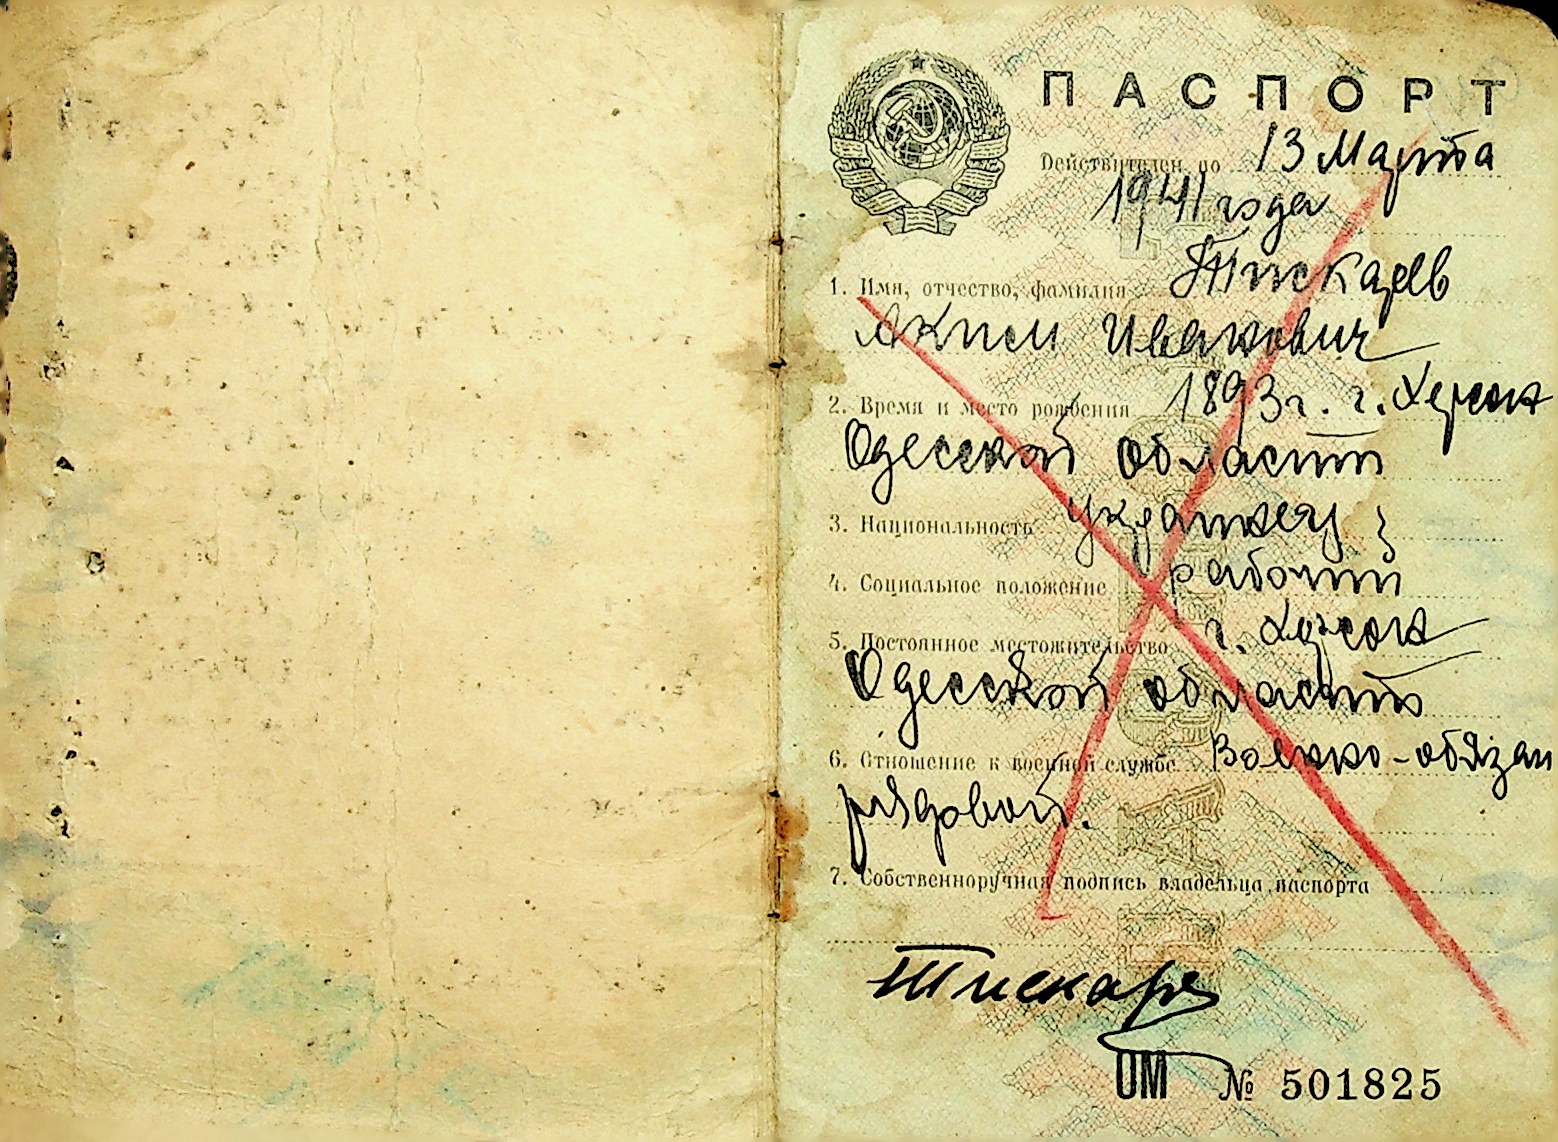 ПАСПОРТ
Действителен по 13 Марта
1941 года
1. Имя, отчество, фамилия Тискарев
Аким Иванович
2. Время и место рождения 1893 г. г. Херсон
Одесской области
3. Национальность украинец
4. Социальное положение рабочий
5. Постоянное местожительство г. Херсон
Одесской области
6. Отношение к военной службе Военно-обязан
рядовой.
7. Собственноручная подпись владельца паспорта
Тискарев
ОМ № 501825